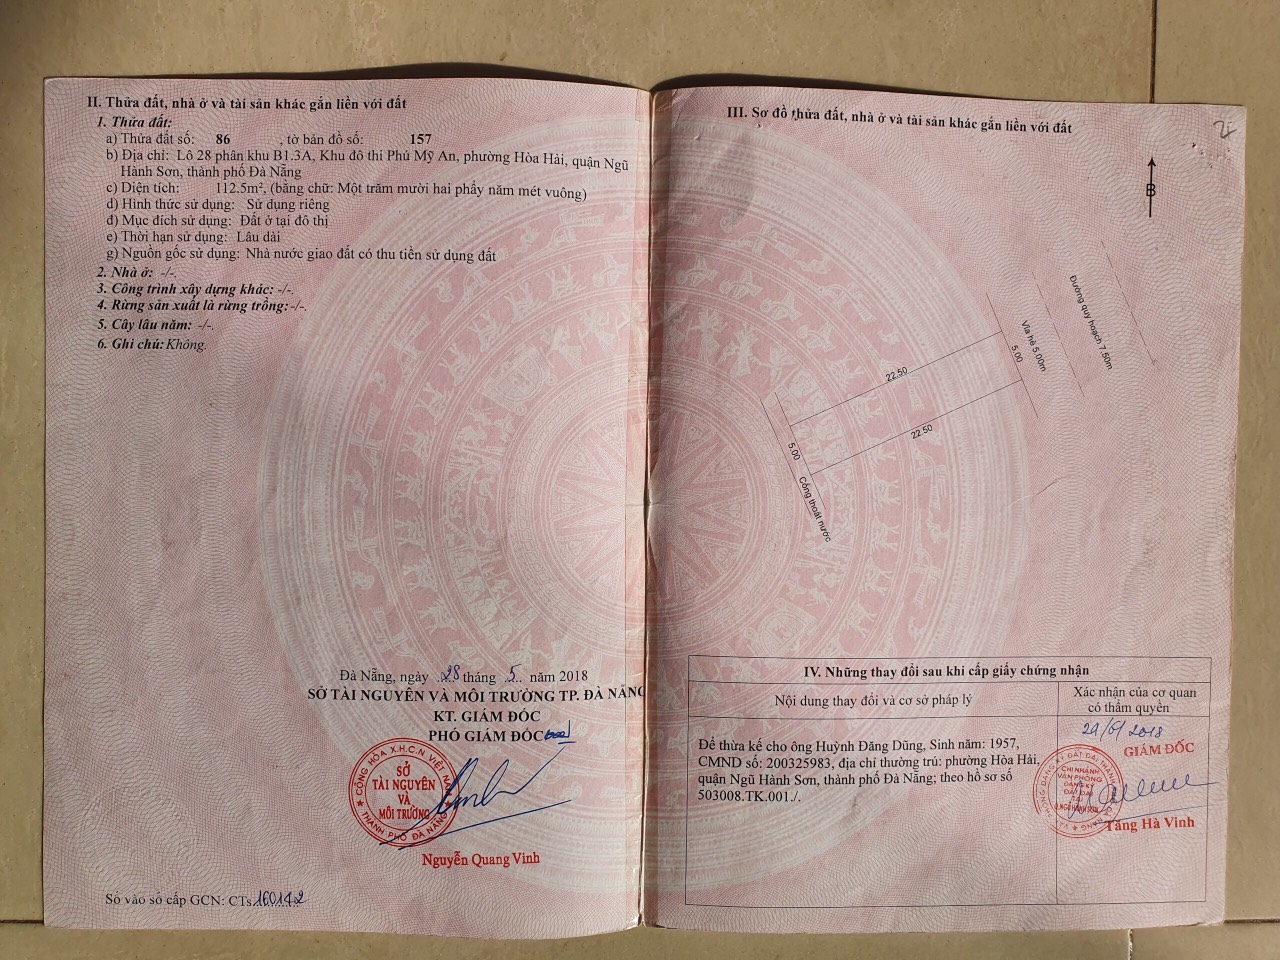 II. Thửa đất, nhà ở và tài sản khác gắn liền với đất
1. Thửa đất:
a) Thửa đất số: 86 , tờ bản đồ số: 157
b) Địa chỉ: Lô 28 phân khu B1.3A, Khu đô thi Phú Mỹ An, phường Hòa Hải, quận Ngũ
Hành Sơn, thành phố Đà Nẵng
c) Diện tích: 112.5m², (bằng chữ: Một trăm mười hai phẩy năm mét vuông)
d) Hình thức sử dụng: Sử dụng riêng
đ) Mục đích sử dụng: Đất ở tại đô thị
e) Thời hạn sử dụng: Lâu dài
g) Nguồn gốc sử dụng: Nhà nước giao đất có thu tiền sử dụng đất
2. Nhà ở: -/-.
3. Công trình xây dựng khác: -/-.
4. Rừng sản xuất là rừng trồng: -/-.
5. Cây lâu năm: -/-.
6. Ghi chú: Không.
Đà Nẵng, ngày 28 tháng 5 năm 2018
SỞ TÀI NGUYÊN VÀ MÔI TRƯỜNG TP. ĐÀ NẴNG
KT. GIÁM ĐỐC
PHÓ GIÁM ĐỐC
CỘNG HÒA X.H.C.N VIỆT NAM
SỞ
TÀI NGUYÊN
VÀ
MÔI TRƯỜNG
THÀNH PHỐ ĐÀ NẴNG
Nguyễn Quang Vinh
Số vào sổ cấp GCN: CTs 160142
III. Sơ đồ thửa đất, nhà ở và tài sản khác gắn liền với đất
B
Đường quy hoạch 7.50m
Vỉa hè 5.00m
5.00
22.50
22.50
5.00
Cống thoát nước
IV. Những thay đổi sau khi cấp giấy chứng nhận
Nội dung thay đổi và cơ sở pháp lý
Xác nhận của cơ quan
có thẩm quyền
Để thừa kế cho ông Huỳnh Đăng Dũng, Sinh năm: 1957,
CMND số: 200325983, địa chỉ thường trú: phường Hòa Hải,
quận Ngũ Hành Sơn, thành phố Đà Nẵng; theo hồ sơ số
503008.TK.001./.
29/6/2018
GIÁM ĐỐC
CHI NHÁNH
VĂN PHÒNG
ĐĂNG KÝ
ĐẤT ĐAI
TẠI
Q.NGŨ HÀNH SƠN
Tăng Hà Vinh